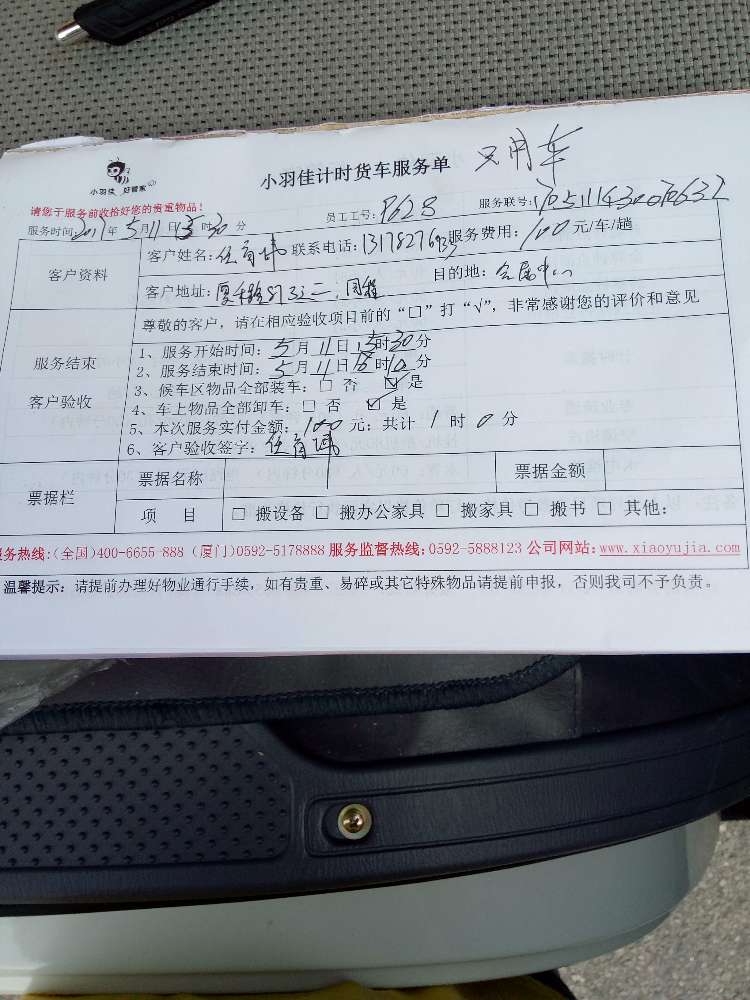 小羽佳 好管家
小羽佳计时货车服务单 只用车
请您于服务前收拾好您的贵重物品!
服务时间:2017年5月11日15时30分 员工工号:P628 服务联号:
客户资料
客户姓名: 联系电话: 服务费用:100元/车/趟
客户地址: 目的地:会展中心
尊敬的客户,请在相应验收项目前的“口”打“√”,非常感谢您的评价和意见
服务结束
客户验收
1、服务开始时间:5月11日15时30分
2、服务结束时间:5月11日
3、候车区物品全部装车:□ 否 ☑ 是
4、车上物品全部卸车:□ 否 ☑ 是
5、本次服务实付金额:100元;共计1时0分
6、客户验收签字:
票据栏
票据名称 票据金额
项 目 □ 搬设备 □ 搬办公家具 □ 搬家具 □ 搬书 □ 其他:
服务热线:(全国)400-6655-888 (厦门)0592-5178888 服务监督热线:0592-5888123 公司网站:www.xiaoyujia.com
温馨提示:请提前办理好物业通行手续,如有贵重、易碎或其它特殊物品请提前申报,否则我司不予负责。